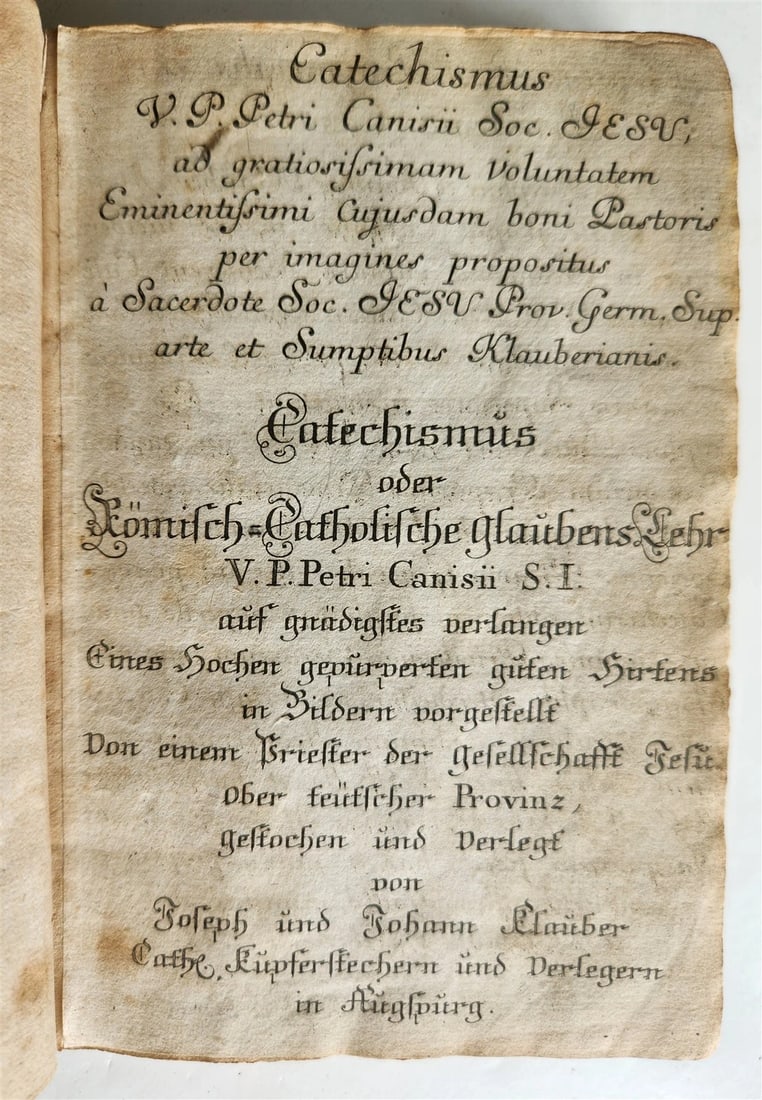 Catechismus
V. P. Petri Canisii Soc. JESU,
ad gratiosiſsimam Voluntatem
Eminentiſsimi Cujusdam boni Pastoris
per imagines propositus
à Sacerdote Soc. JESU Prov. Germ. Sup.
arte et Sumptibus Klauberianis.
Catechismus
oder
Römiſch=Catholiſche Glaubens Lehr
V. P. Petri Canisii S. I.
auf gnädigſtes verlangen
Eines Hochen gepurperten guten Hirtens
in Bildern vorgeſtellt
Von einem Prieſter der Geſellſchafft Jeſu.
Ober teütſcher Provinz,
geſtochen und Verlegt
von
Joſeph und Johann Klauber
Cath. Kupferſtechern und Verlegern
in Augſpurg.